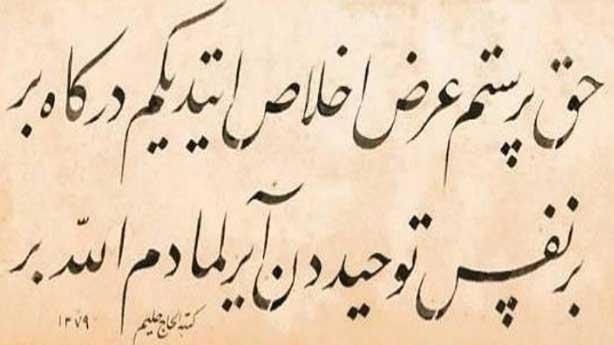 حق پرستم عرض اخلاص ایتدیکم درکاه بر
بر نفس توحیددن آیرلمادم الله بر
کتبه الحاج حلیم ١٣٧٩